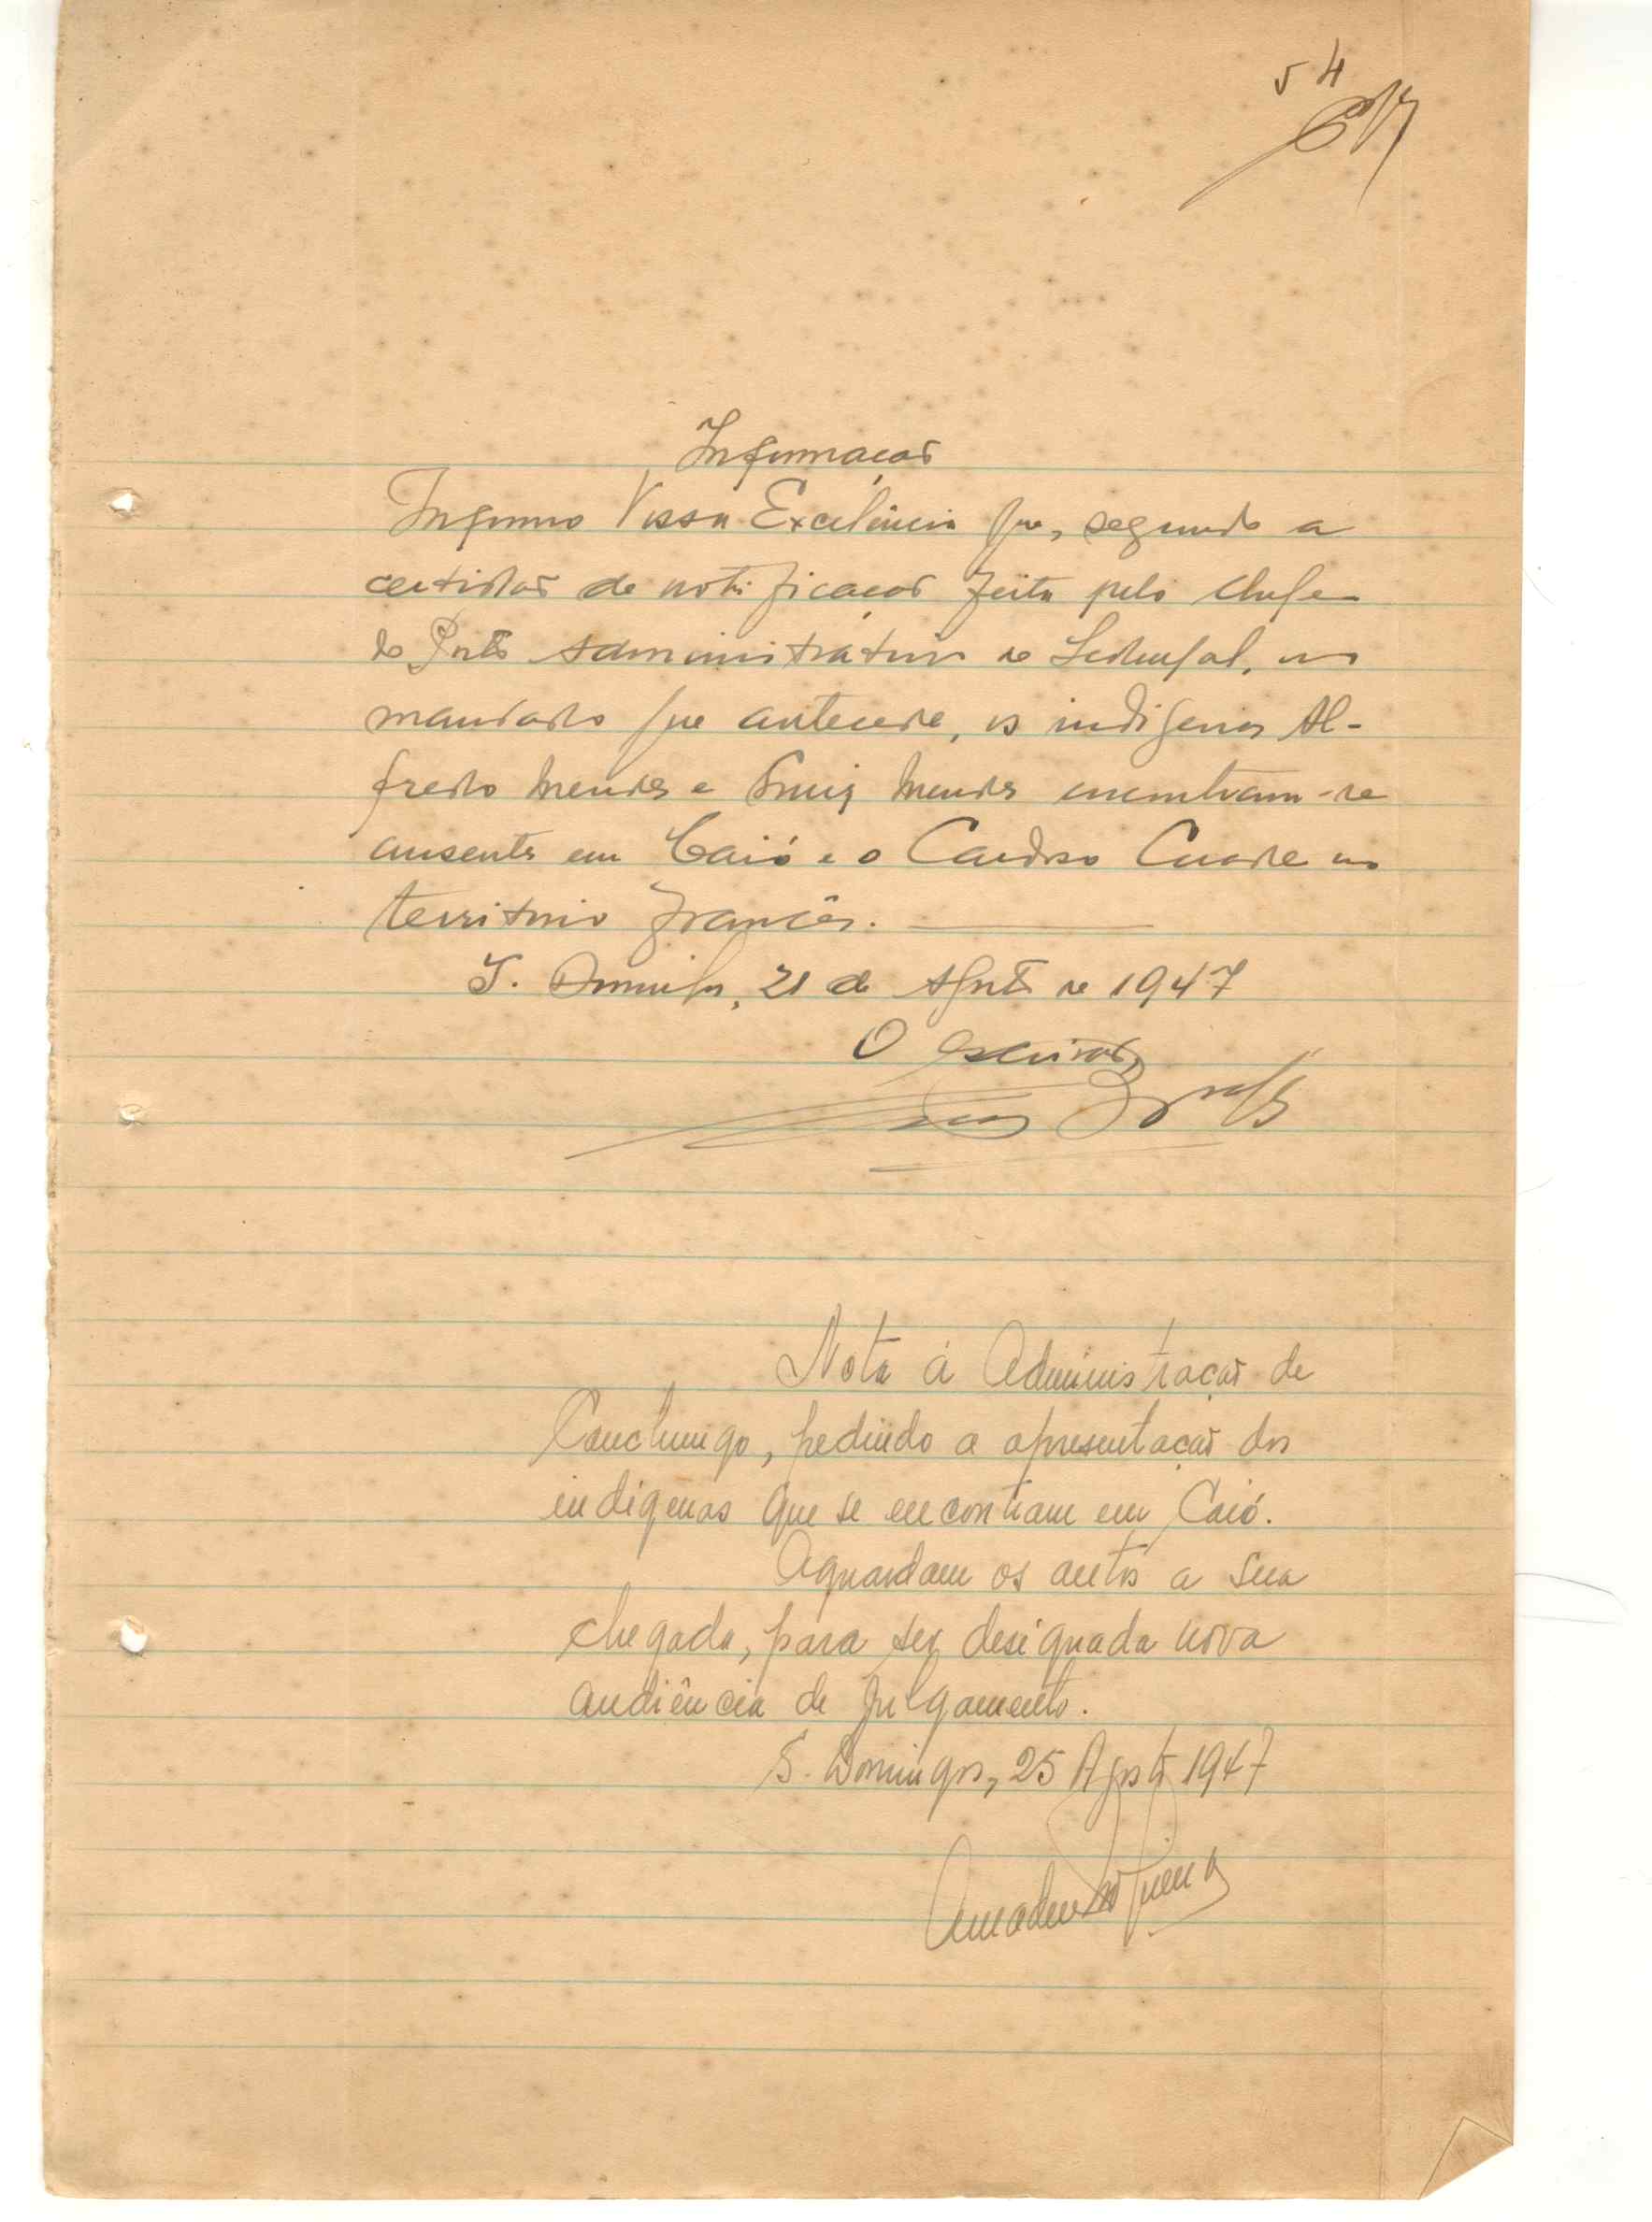 54
Informação
Informo Vossa Excelência que, segundo a
certidão de notificação feita pelo Chefe
do Posto Administrativo de Sedengal, no
mandado que antecede, os indígenas Al-
fredo Mendes e Mendes encontram-se
ausentes em Caió e o Cardoso no
territorio francês.
S. Domingos, 21 de Agosto de 1947
O escrivão,
Nota á Administração de
Canchungo, pedindo a apresentação dos
indígenas que se encontram em Caió.
Aguardam os autos a sua
chegada, para ser designada nova
audiência de julgamento.
S. Domingos, 25 Agosto 1947
Amadeu